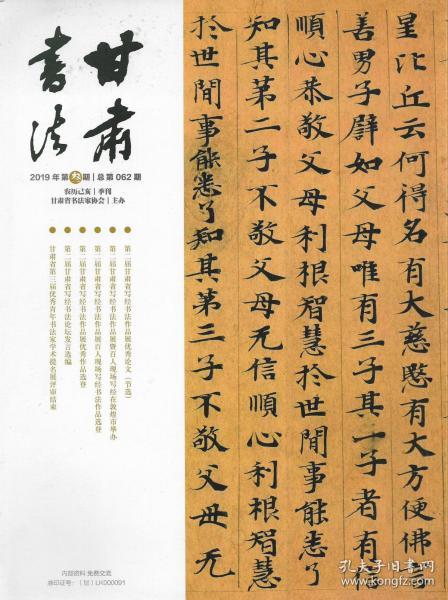 甘肃
书法
2019 年第叁期 | 总第 062 期
农历己亥 | 季刊
甘肃省书法家协会 | 主办
第二届甘肃省写经书法作品展优秀论文（节选）
第二届甘肃省写经书法作品展暨百人现场写经在敦煌市举办
第二届甘肃省写经书法作品展百人现场写经书法作品选登
第二届甘肃省写经书法作品展优秀作品选登
第二届甘肃省写经书法论坛发言选编
甘肃省第三届优秀青年书法家学术提名展评审结束
星比丘云何得名有大慈愍有大方便佛言
善男子譬如父母唯有三子其一子者有
順心恭敬父母利根智慧於世間事能悉了
知其第二子不敬父母无信順心利根智慧
於世間事能悉了知其第三子不敬父母无
内部资料 免费交流
准印证号：（甘）LK000091
孔夫子旧书网
kongfz.com